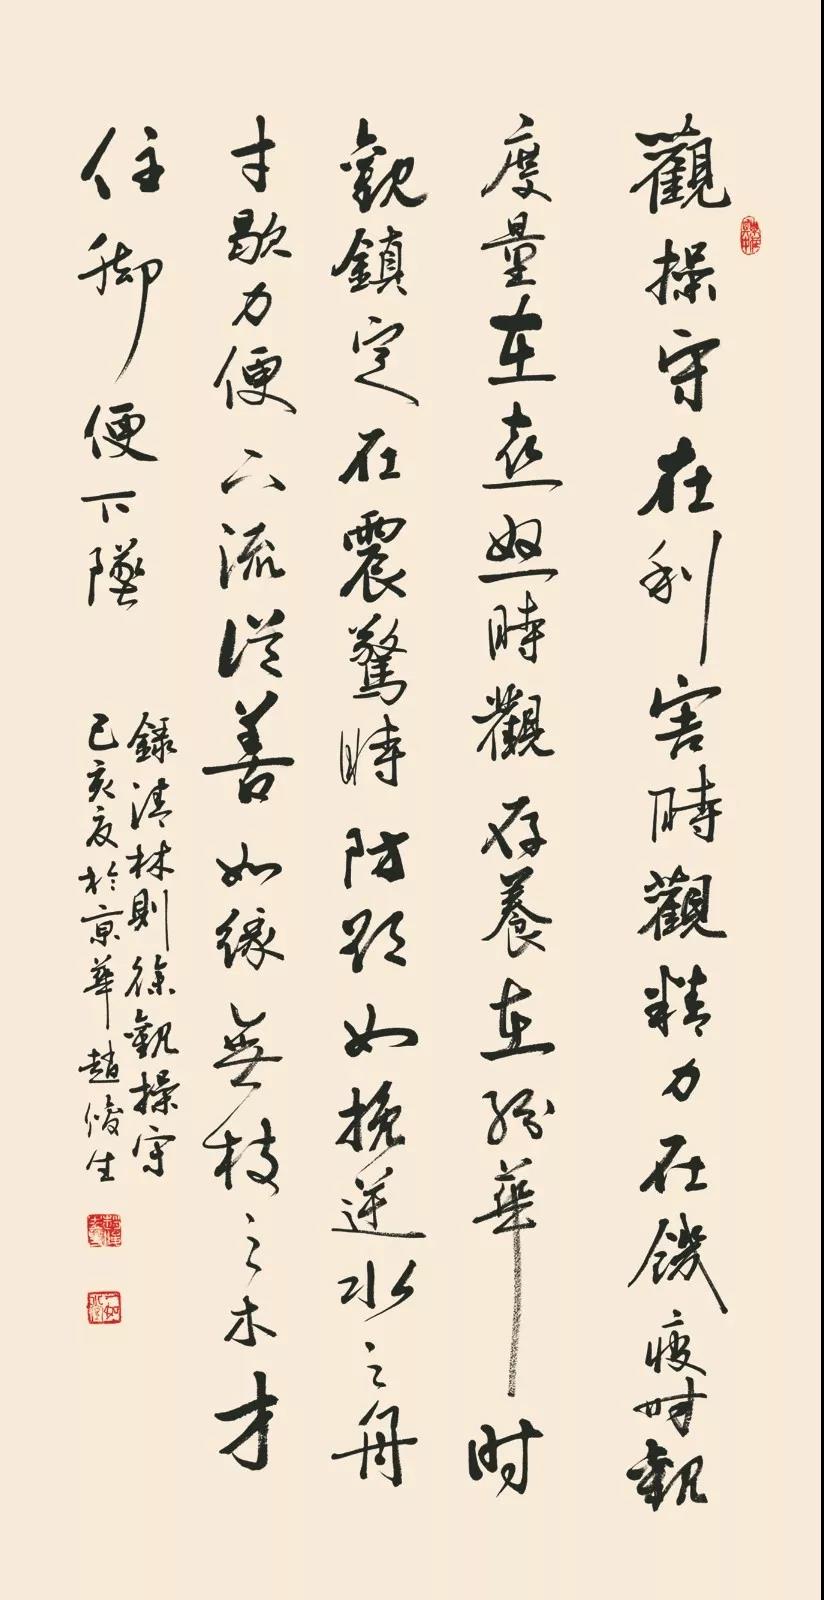 觀操守在利害時觀精力在饑疲時觀
度量在喜怒時觀存養在紛華時
觀鎮定在震驚時防欲如挽逆水之舟
才歇力便下流從善如緣無枝之木才
住脚便下墜
錄清林則徐觀操守
己亥夏於京華趙俊生